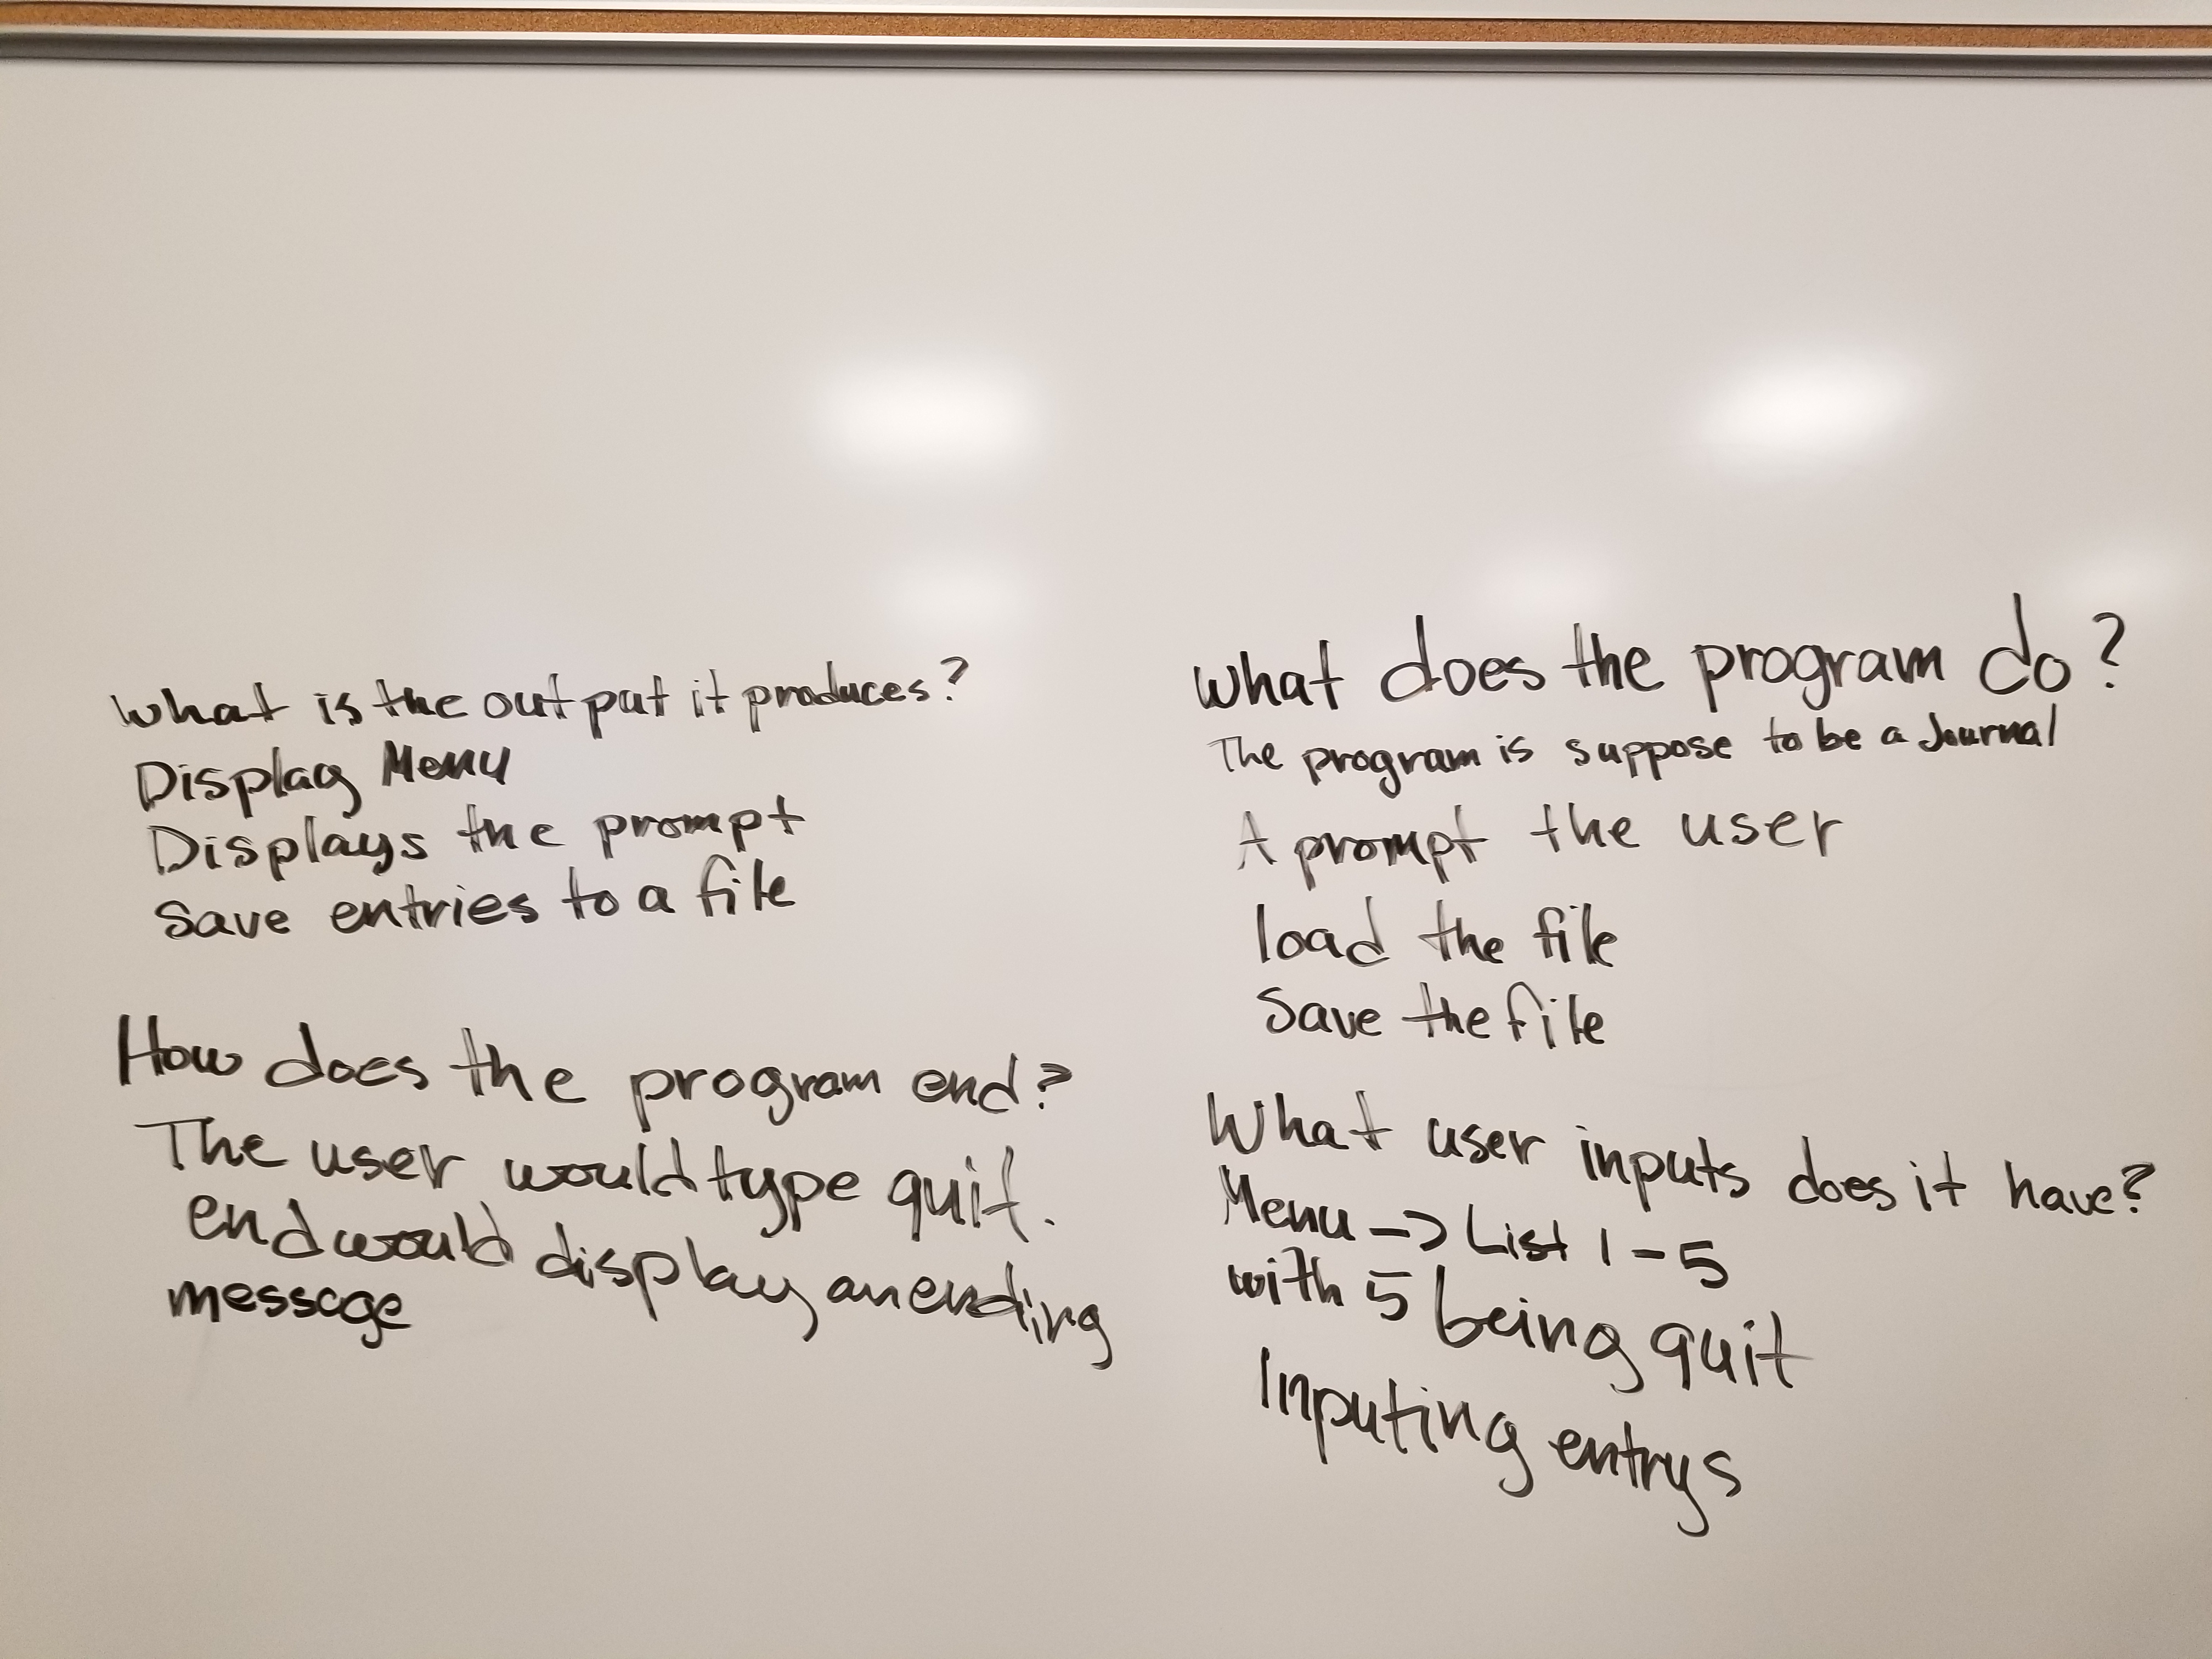 What is the output it produces?
Display Menu
Displays the prompt
Save entries to a file
How does the program end?
The user would type quit.
end would display an ending
message
What does the program do?
The program is suppose to be a Journal
A prompt the user
load the file
Save the file
What user inputs does it have?
Menu -> List 1-5
with 5 being quit
Inputing entrys